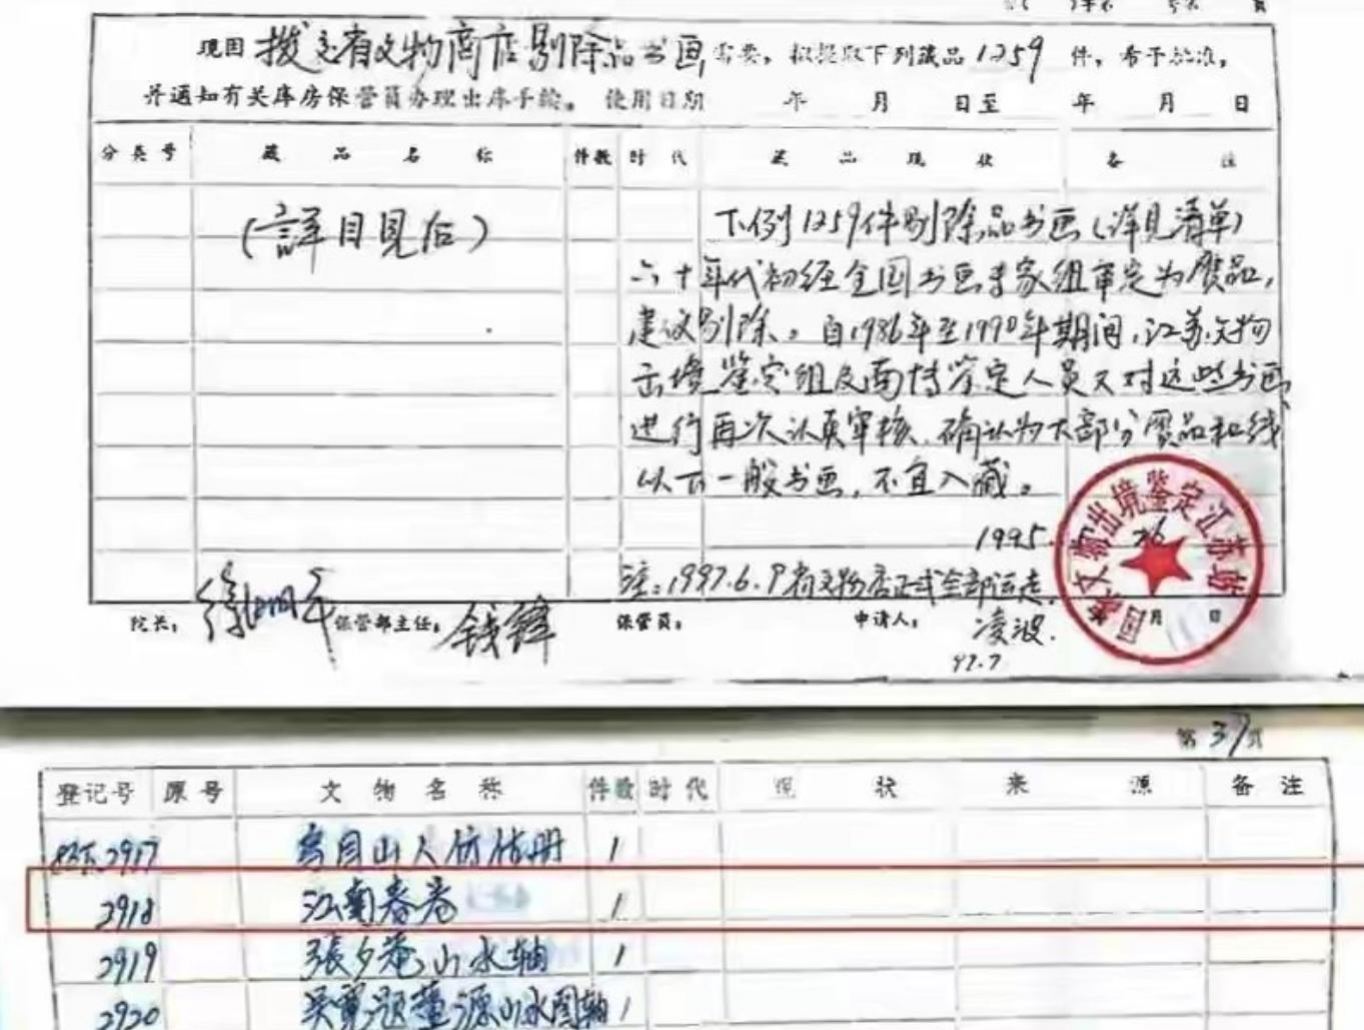 现因 拨交省文物商店剔除品书画 需要，拟提取下列藏品 1259 件，希予批准，
并通知有关库房保管员办理出库手续。 使用日期 年 月 日至 年 月 日
分类号 藏品名称 件数 时代 藏品现状 备注
(詳目見后) 下例1259件剔除品书画(详見清单)
六十年代初经全国书画专家组审定为赝品，
建议剔除。自1986年至1990年期间，江苏文物
出境鉴定组及南博鉴定人员又对这些书画
进行再次认真审核，确认为大部分赝品和线
以下一般书画，不宜入藏。
1995.
注：1997.6.9省文物店正式全部运走.
院长： 徐湖平 保管部主任： 钱锋 保管员： 申请人： 凌波.
97.7
国家文物出境鉴定江苏站
月 日
第 37 页
登记号 原号 文物名称 件数 时代 现状 来源 备注
2917 仿 册 1
2918 江南春卷 1
2919 張夕菴山水轴 1
2920 吴寬题董源山水图轴 1